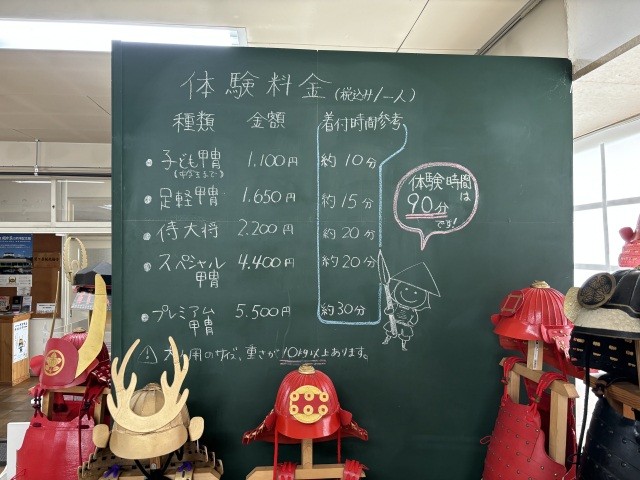 体験料金(税込み/一人)
種類 金額 着付時間参考
・子ども甲冑 1.100円 約10分
(中学生まで)
・足軽甲冑 1.650円 約15分
・侍大将 2.200円 約20分
・スペシャル甲冑 4.400円 約20分
・プレミアム甲冑 5.500円 約30分
⚠大人用のサイズ、重さが10kg以上あります。
体験時間
は
90分
です!